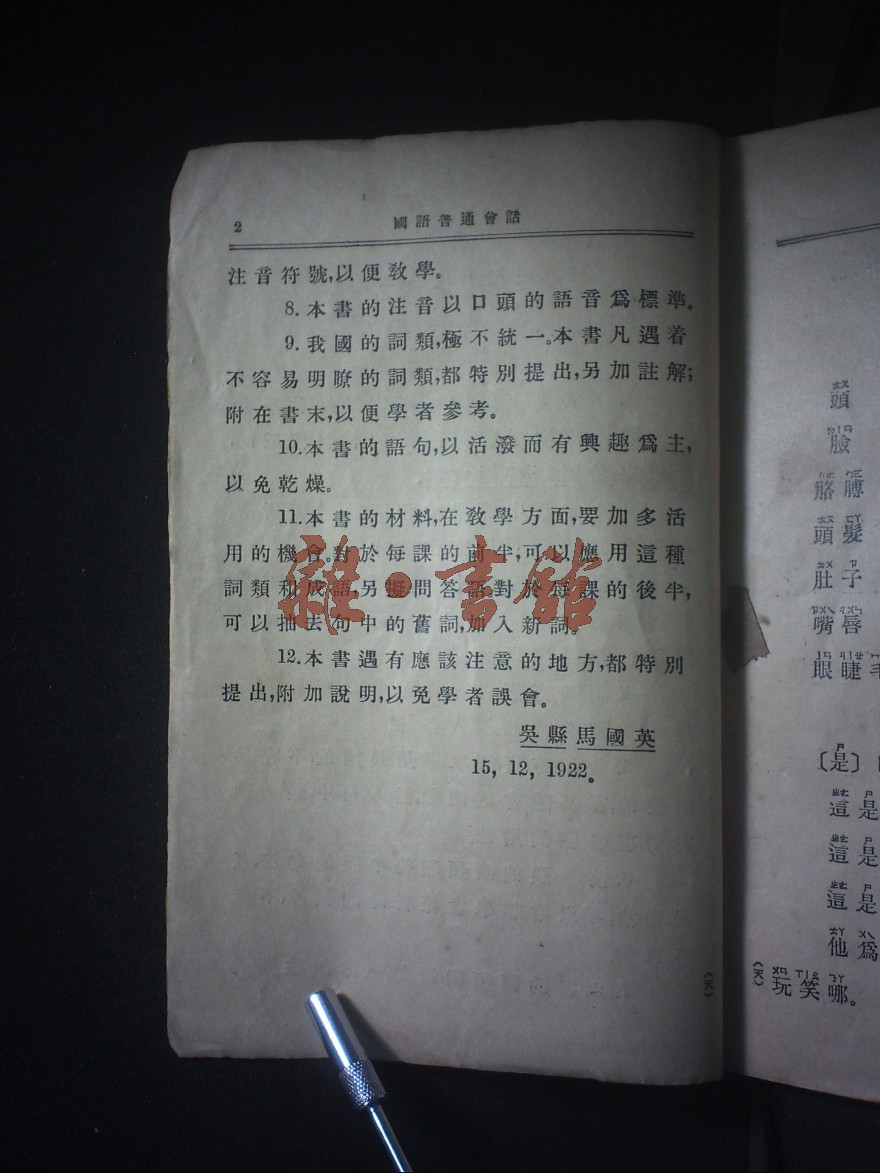 2
國語普通會話
注音符號,以便敎學。
8. 本書的注音以口頭的語音爲標準。
9. 我國的詞類,極不統一。本書凡遇着
不容易明瞭的詞類,都特別提出,另加註解;
附在書末,以便學者參考。
10. 本書的語句,以活潑而有興趣爲主,
以免乾燥。
11. 本書的材料,在敎學方面,要加多活
用的機會。對於每課的前半,可以應用這種
詞類和成語,另擬問答語;對於每課的後半,
可以抽去句中的舊詞,加入新詞。
12. 本書遇有應該注意的地方,都特別
提出,附加說明,以免學者誤會。
吳縣馬國英
15, 12, 1922。
雜·書館
頭
臉
胳膊
頭髮
肚子
嘴唇
眼睫毛
〔是〕
這是
這是
這是
他爲
玩笑哪。